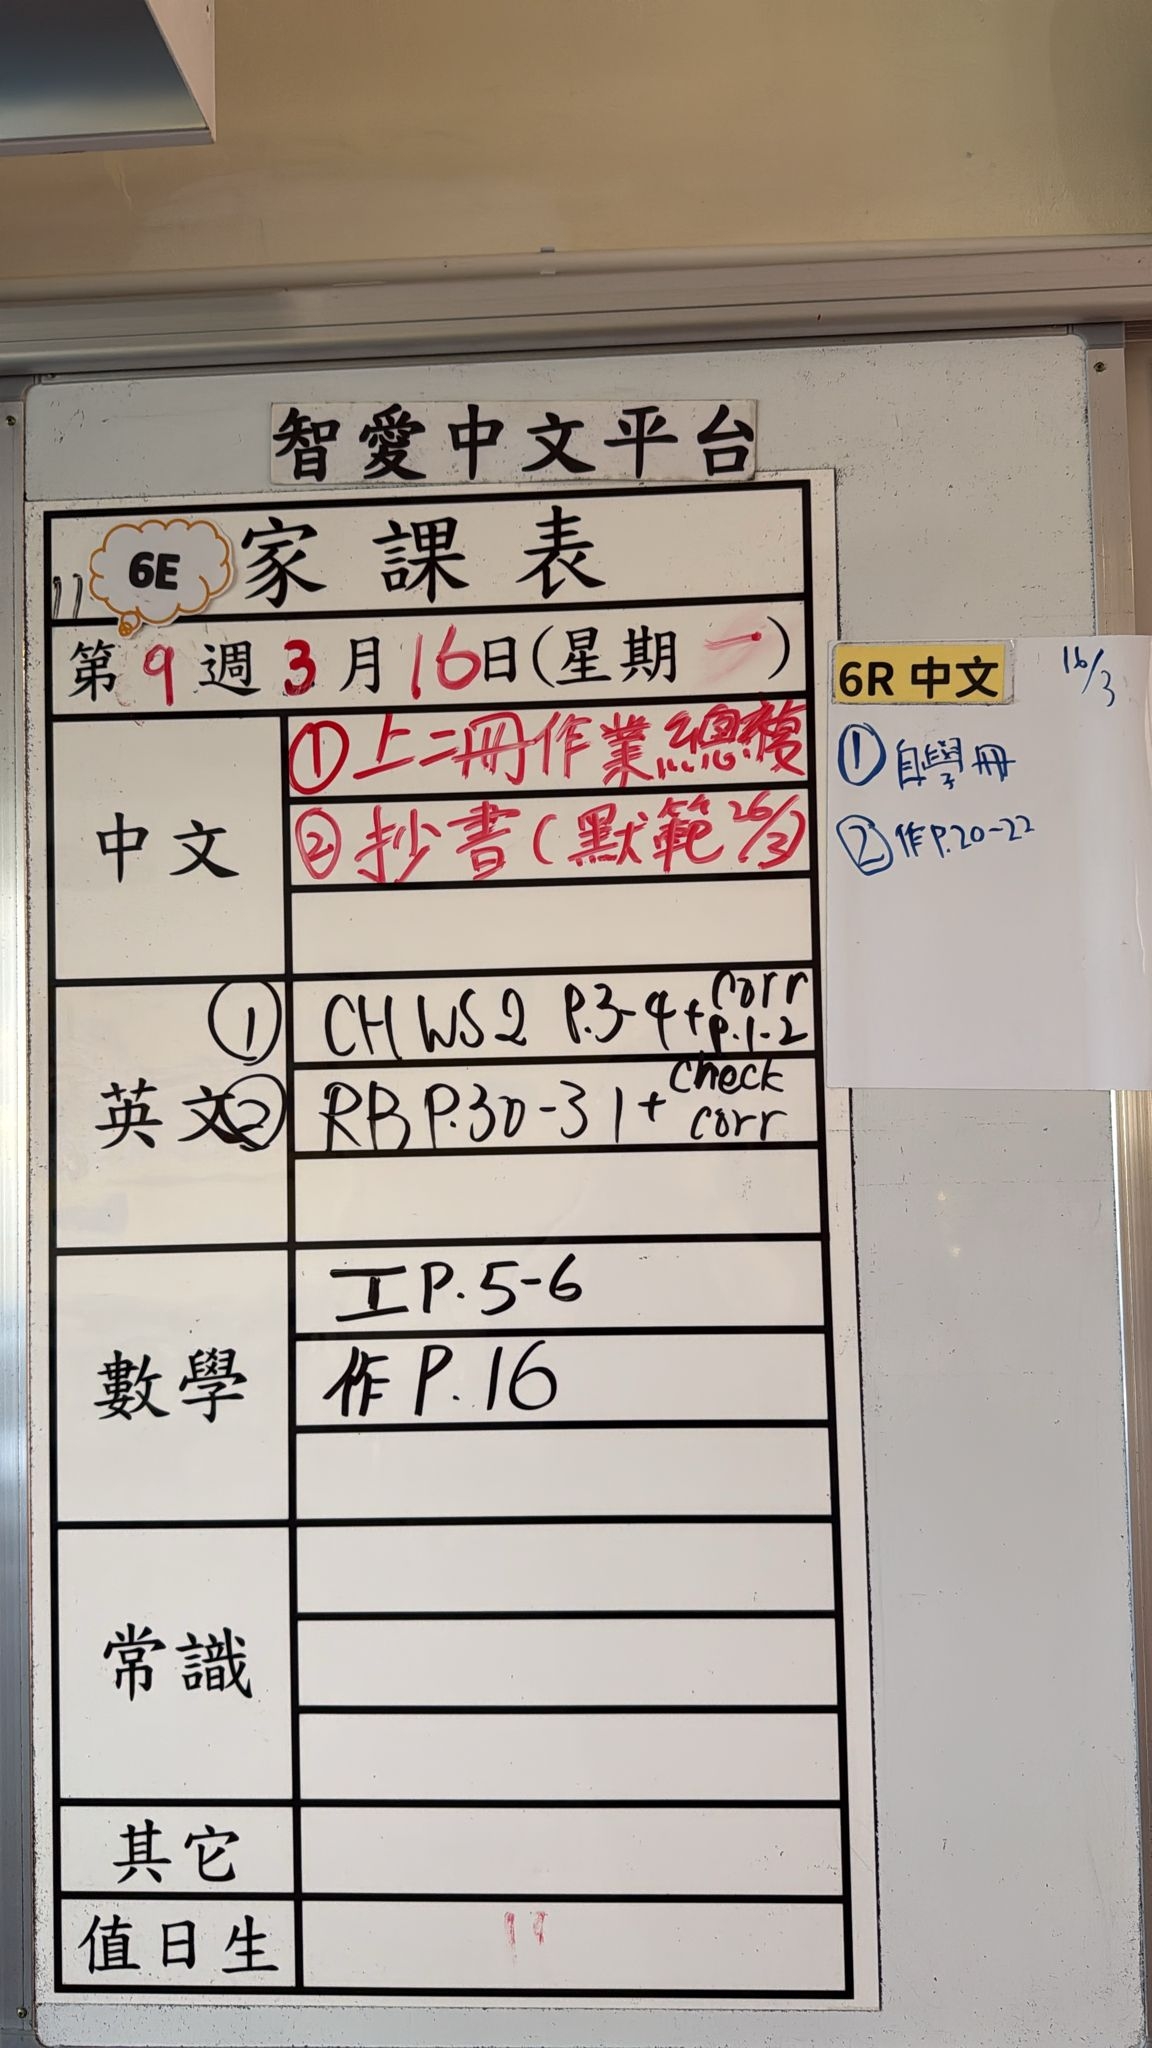 智愛中文平台
6E 家課表
第9週3月16日(星期一)
中文
①上二冊作業總複
②抄書(默範26/3)
英文
① CH WS2 P.3-4+corr P.1-2
② RB P.30-31+check corr
數學
工P.5-6
作P.16
常識
其它
值日生
6R 中文 16/3
①自學冊
②作P.20-22